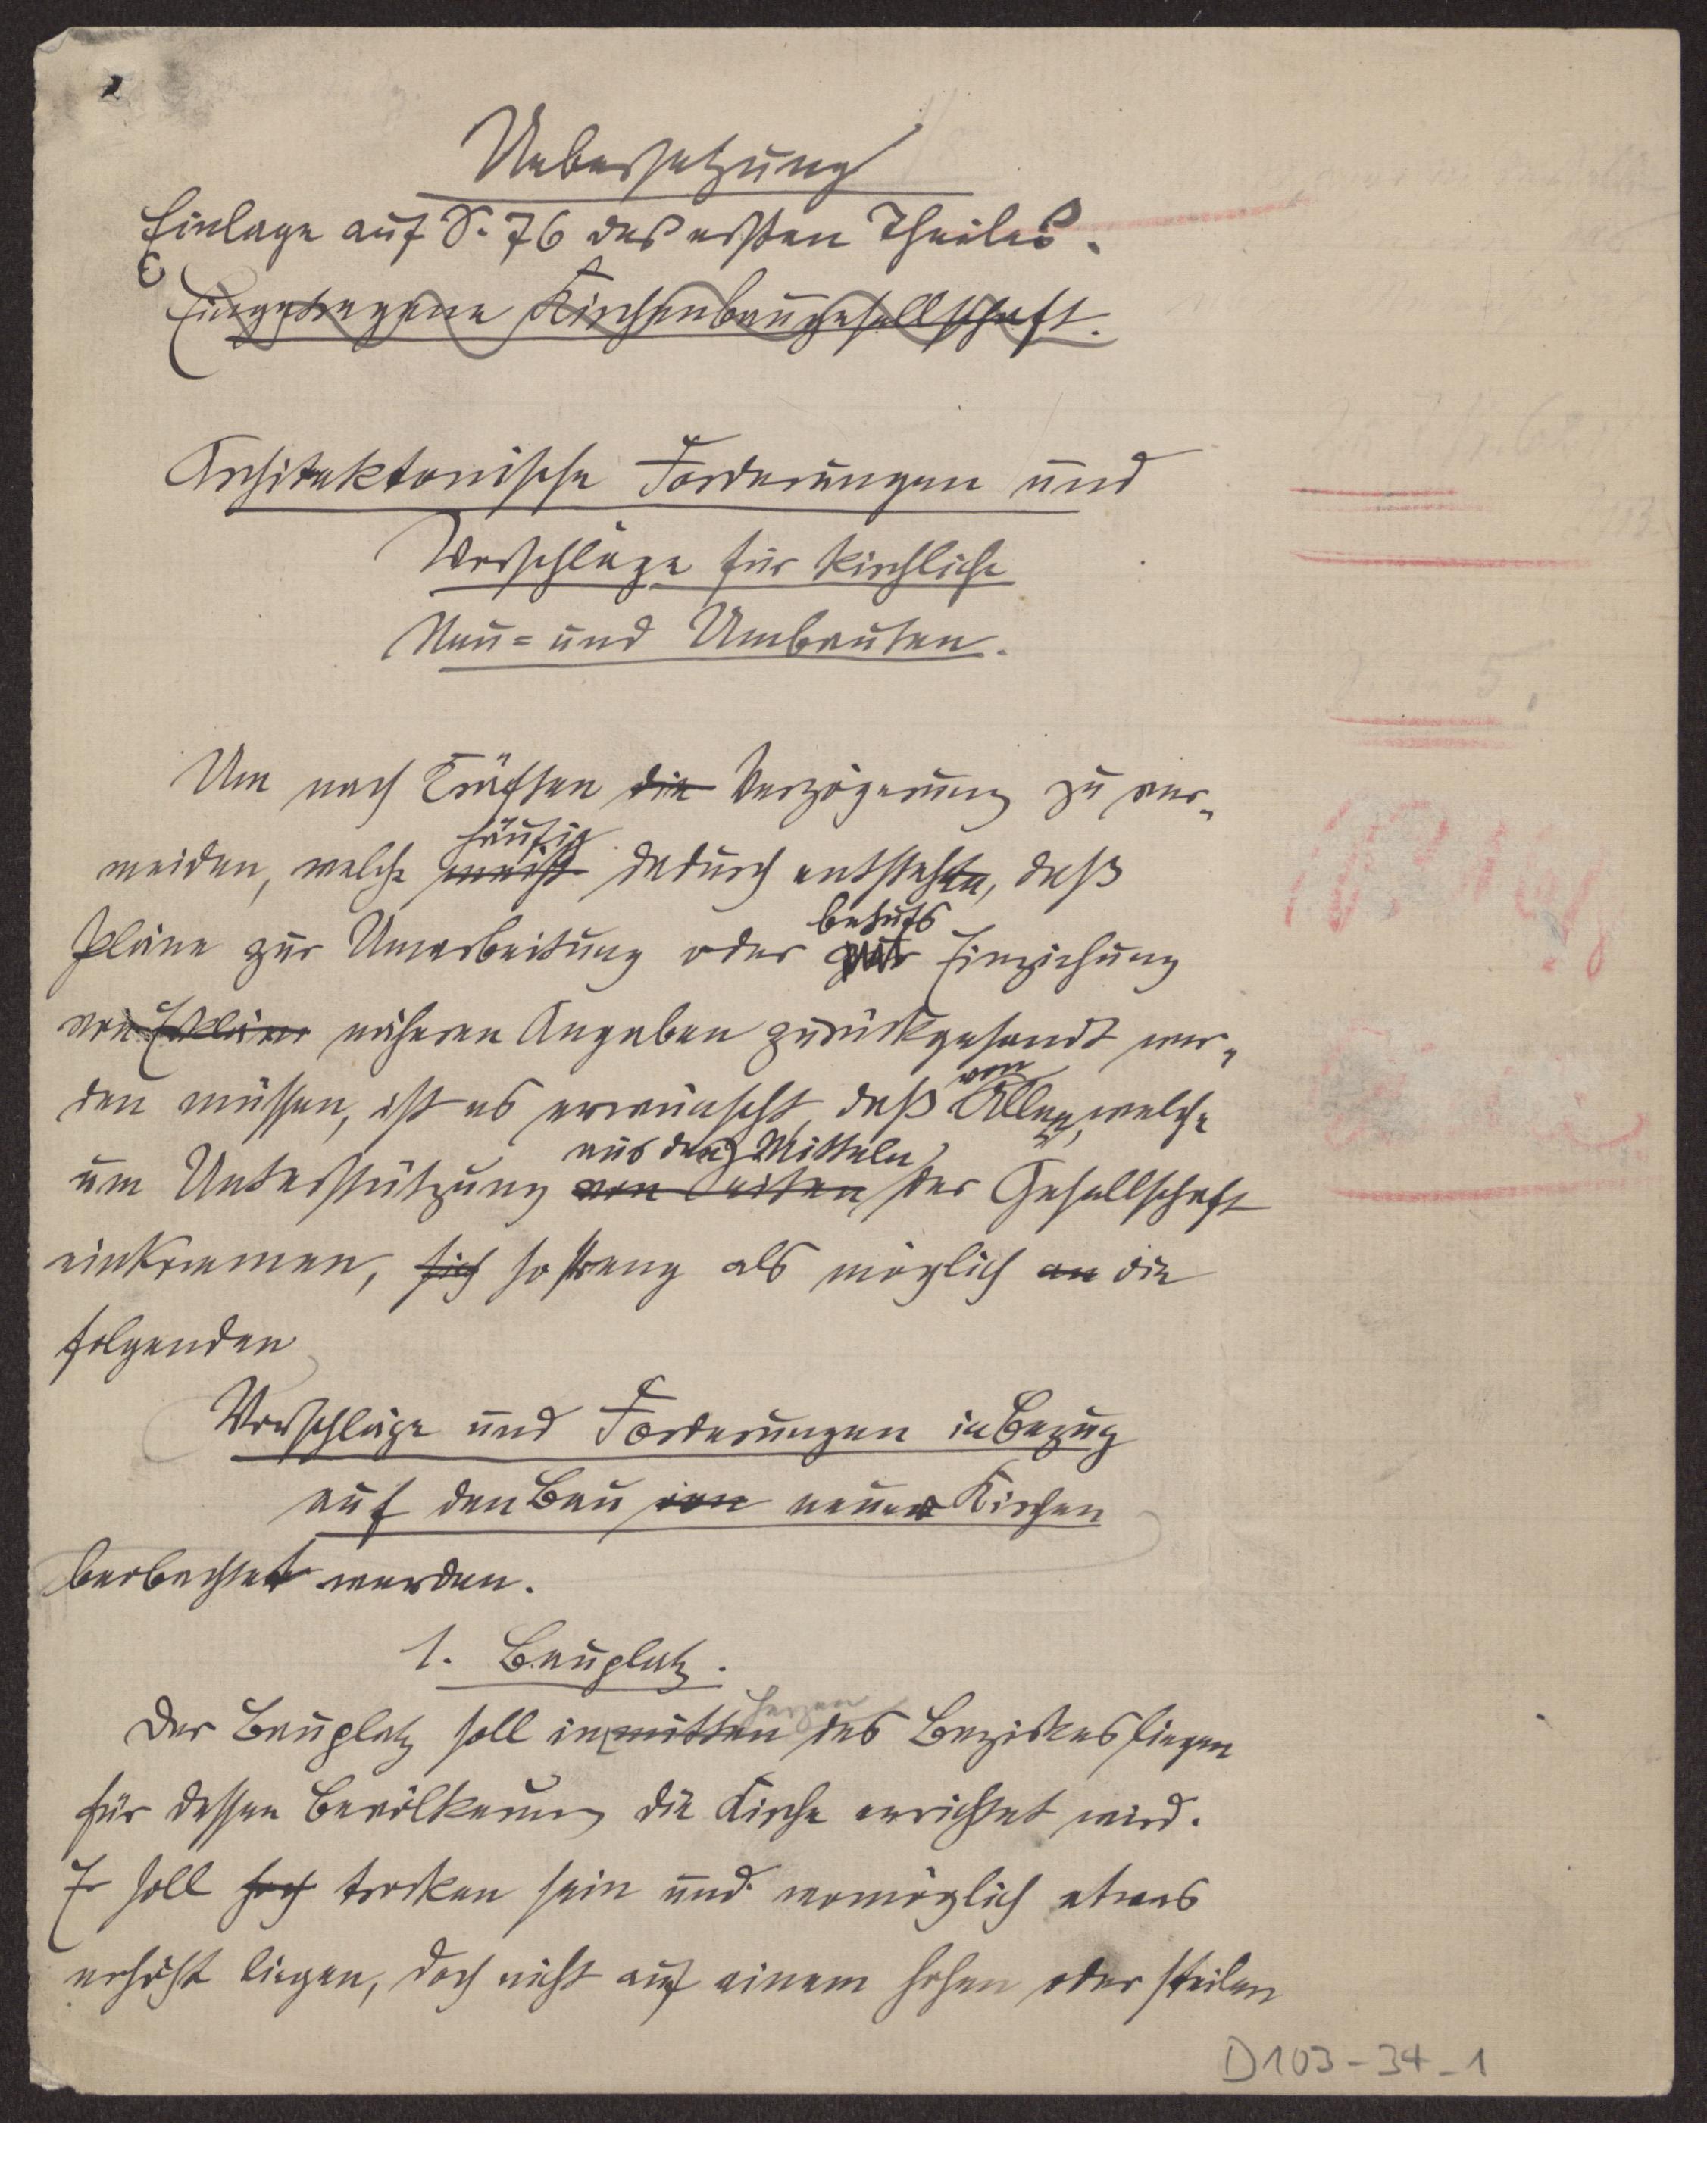 Uebersetzung
Einlage auf S. 76 des ersten Theiles.
Eingetragene Kirchenbaugesellschaft.
Architektonische Forderungen und
Vorschläge für kirchliche
Neu= und Umbauten.
Um nach Kräften die Verzögerung zu ver-
häufig
meiden, welche meist dadurch entstehen, daß
behufs
Pläne zur Umarbeitung oder zur Einziehung
von näheren Angaben zurückgesandt wer-
von
den müssen, ist es erwünscht, daß Allen, welche
aus den Mitteln
um Unterstützung von Seiten der Gesellschaft
einkommen, sich so streng als möglich an die
folgenden
Vorschläge und Forderungen in Bezug
auf den Bau von neuer Kirchen
beobachtet werden.
1. Bauplatz.
Herzen
Der Bauplatz soll inmitten des Bezirkes liegen
für dessen Bevölkerung die Kirche errichtet wird.
Er soll hoch trocken sein und womöglich etwas
erhöht liegen, doch nicht auf einem hohen oder steilen
D103-34-1